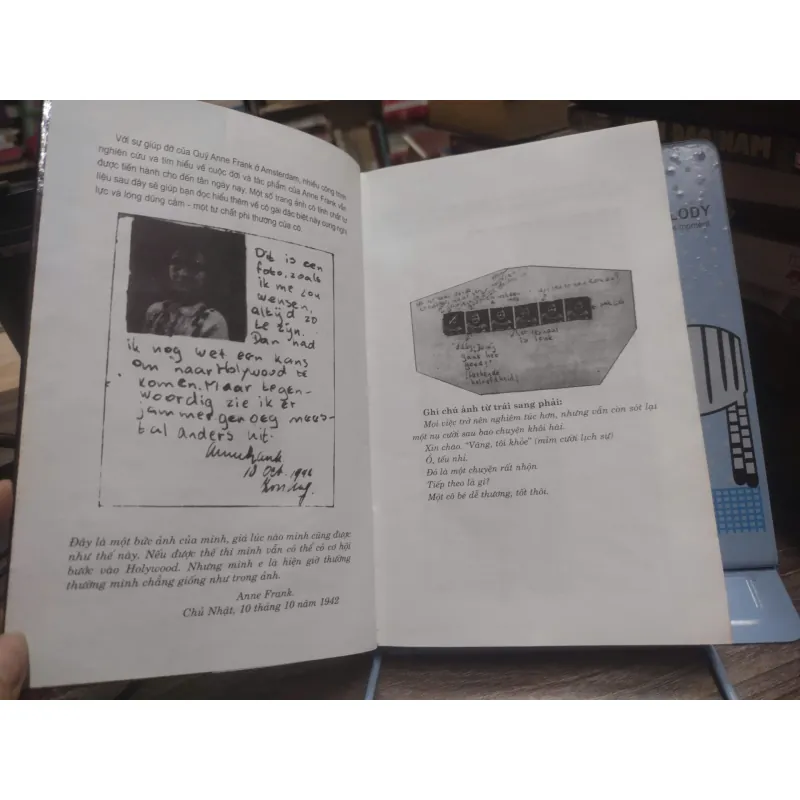 Với sự giúp đỡ của Quỹ Anne Frank ở Amsterdam, nhiều công trình
nghiên cứu và tìm hiểu về cuộc đời và tác phẩm của Anne Frank vẫn
được tiến hành cho đến tận ngày nay. Một số trang ảnh có tính chất tư
liệu sau đây sẽ giúp bạn đọc hiểu thêm về cô gái đặc biệt này cùng nghị
lực và lòng dũng cảm – một tư chất phi thường của cô.
Dit is een
foto, zoals
ik me zou
wensen,
altijd zo
te zijn.
Dan had
ik nog wel een kans
om naar Holywood te
komen. Maar tegen-
woordig zie ik er
jammer genoeg mees-
tal anders uit.
Anne Frank
10 Oct. 1942
Đây là một bức ảnh của mình, giá lúc nào mình cũng được
như thế này. Nếu được thế thì mình vẫn có thể có cơ hội
bước vào Holywood. Nhưng mình e là hiện giờ thường
thường mình chẳng giống như trong ảnh.
Anne Frank.
Chủ Nhật, 10 tháng 10 năm 1942
Ghi chú ảnh từ trái sang phải:
Mọi việc trở nên nghiêm túc hơn, nhưng vẫn còn sót lại
một nụ cười sau bao chuyện khôi hài.
Xin chào. "Vâng, tôi khỏe" (mỉm cười lịch sự)
Ồ, tếu nhỉ.
Đó là một chuyện rất nhộn.
Tiếp theo là gì?
Một cô bé dễ thương, tốt thôi.
LODY
moment
NAM